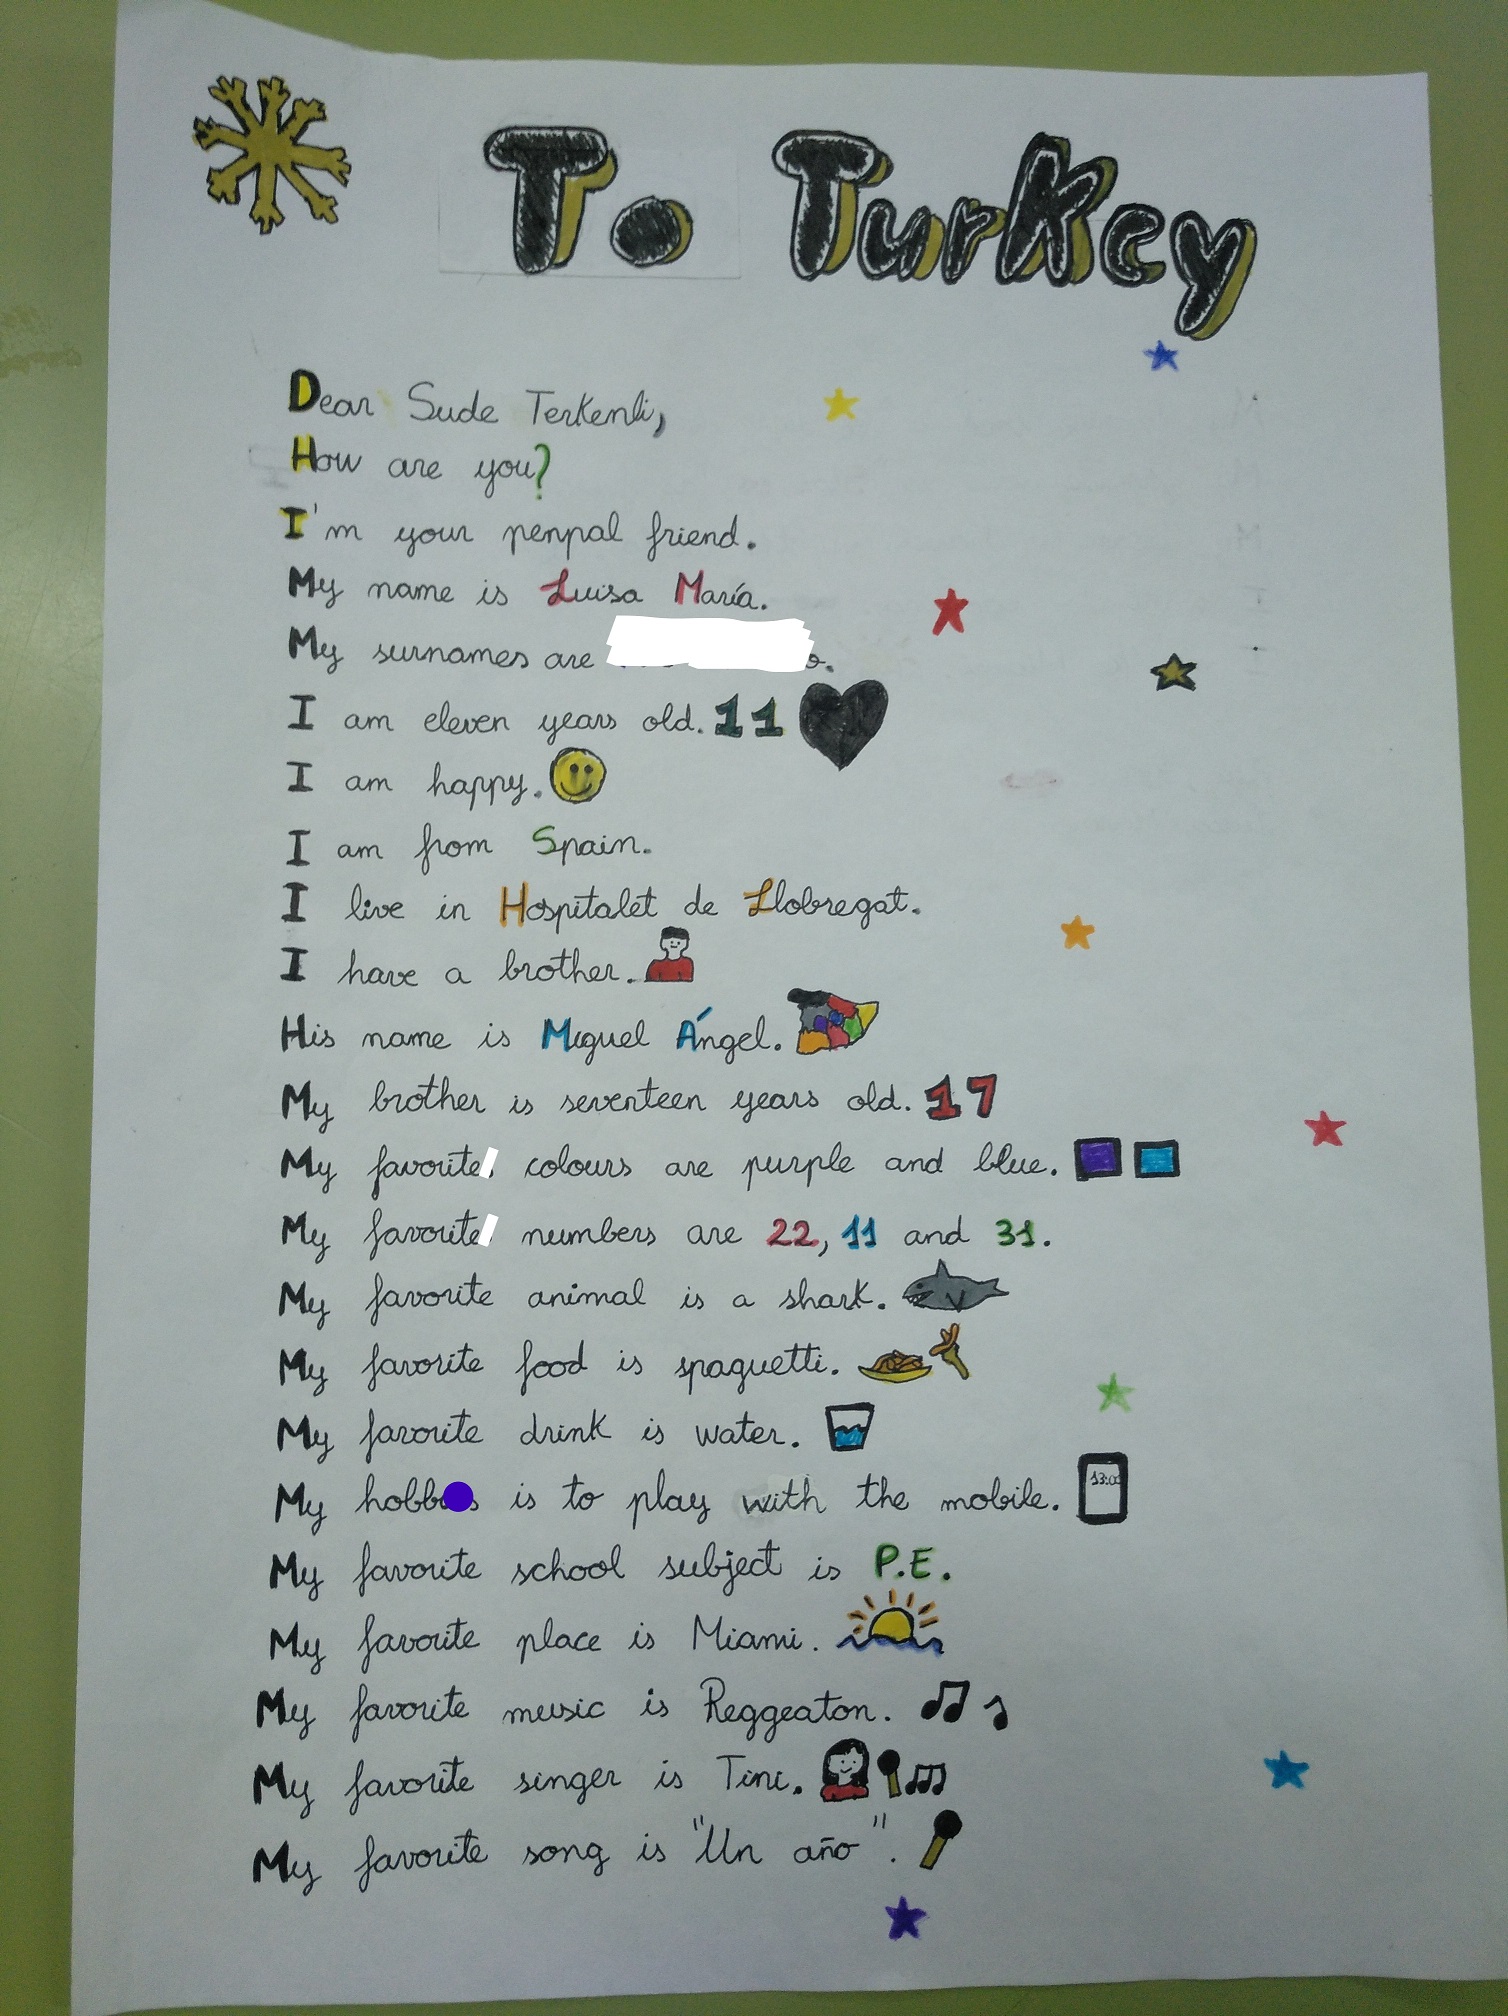 To Turkey
Dear Sude Terkenli,
How are you?
I'm your penpal friend.
My name is Luisa María.
My surnames are
I am eleven years old. 11
I am happy.
I am from Spain.
I live in Hospitalet de Llobregat.
I have a brother.
His name is Miguel Ángel.
My brother is seventeen years old. 17
My favorite colours are purple and blue.
My favorite numbers are 22, 11 and 31.
My favorite animal is a shark.
My favorite food is spaguetti.
My favorite drink is water.
My is to play with the mobile. 13:00
My favorite school subject is P.E.
My favorite place is Miami.
My favorite music is Reggeaton.
My favorite singer is Tini.
My favorite song is "Un año".